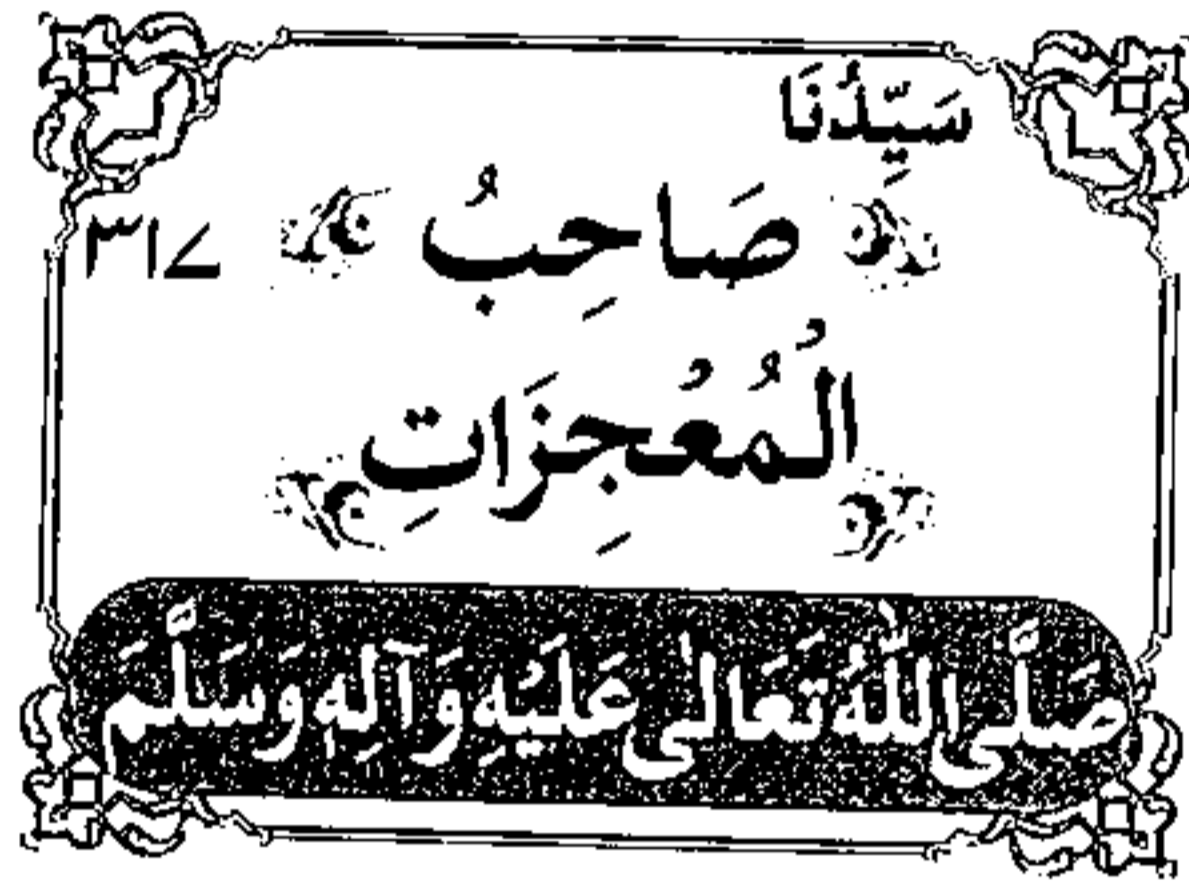 سَيِّدُنَا
صَاحِبُ ٣١٧
الْمُعْجِزَاتِ
صَلَّى اللّٰهُ تَعَالٰى عَلَيْهِ وَآلِهٖ وَسَلَّمَ